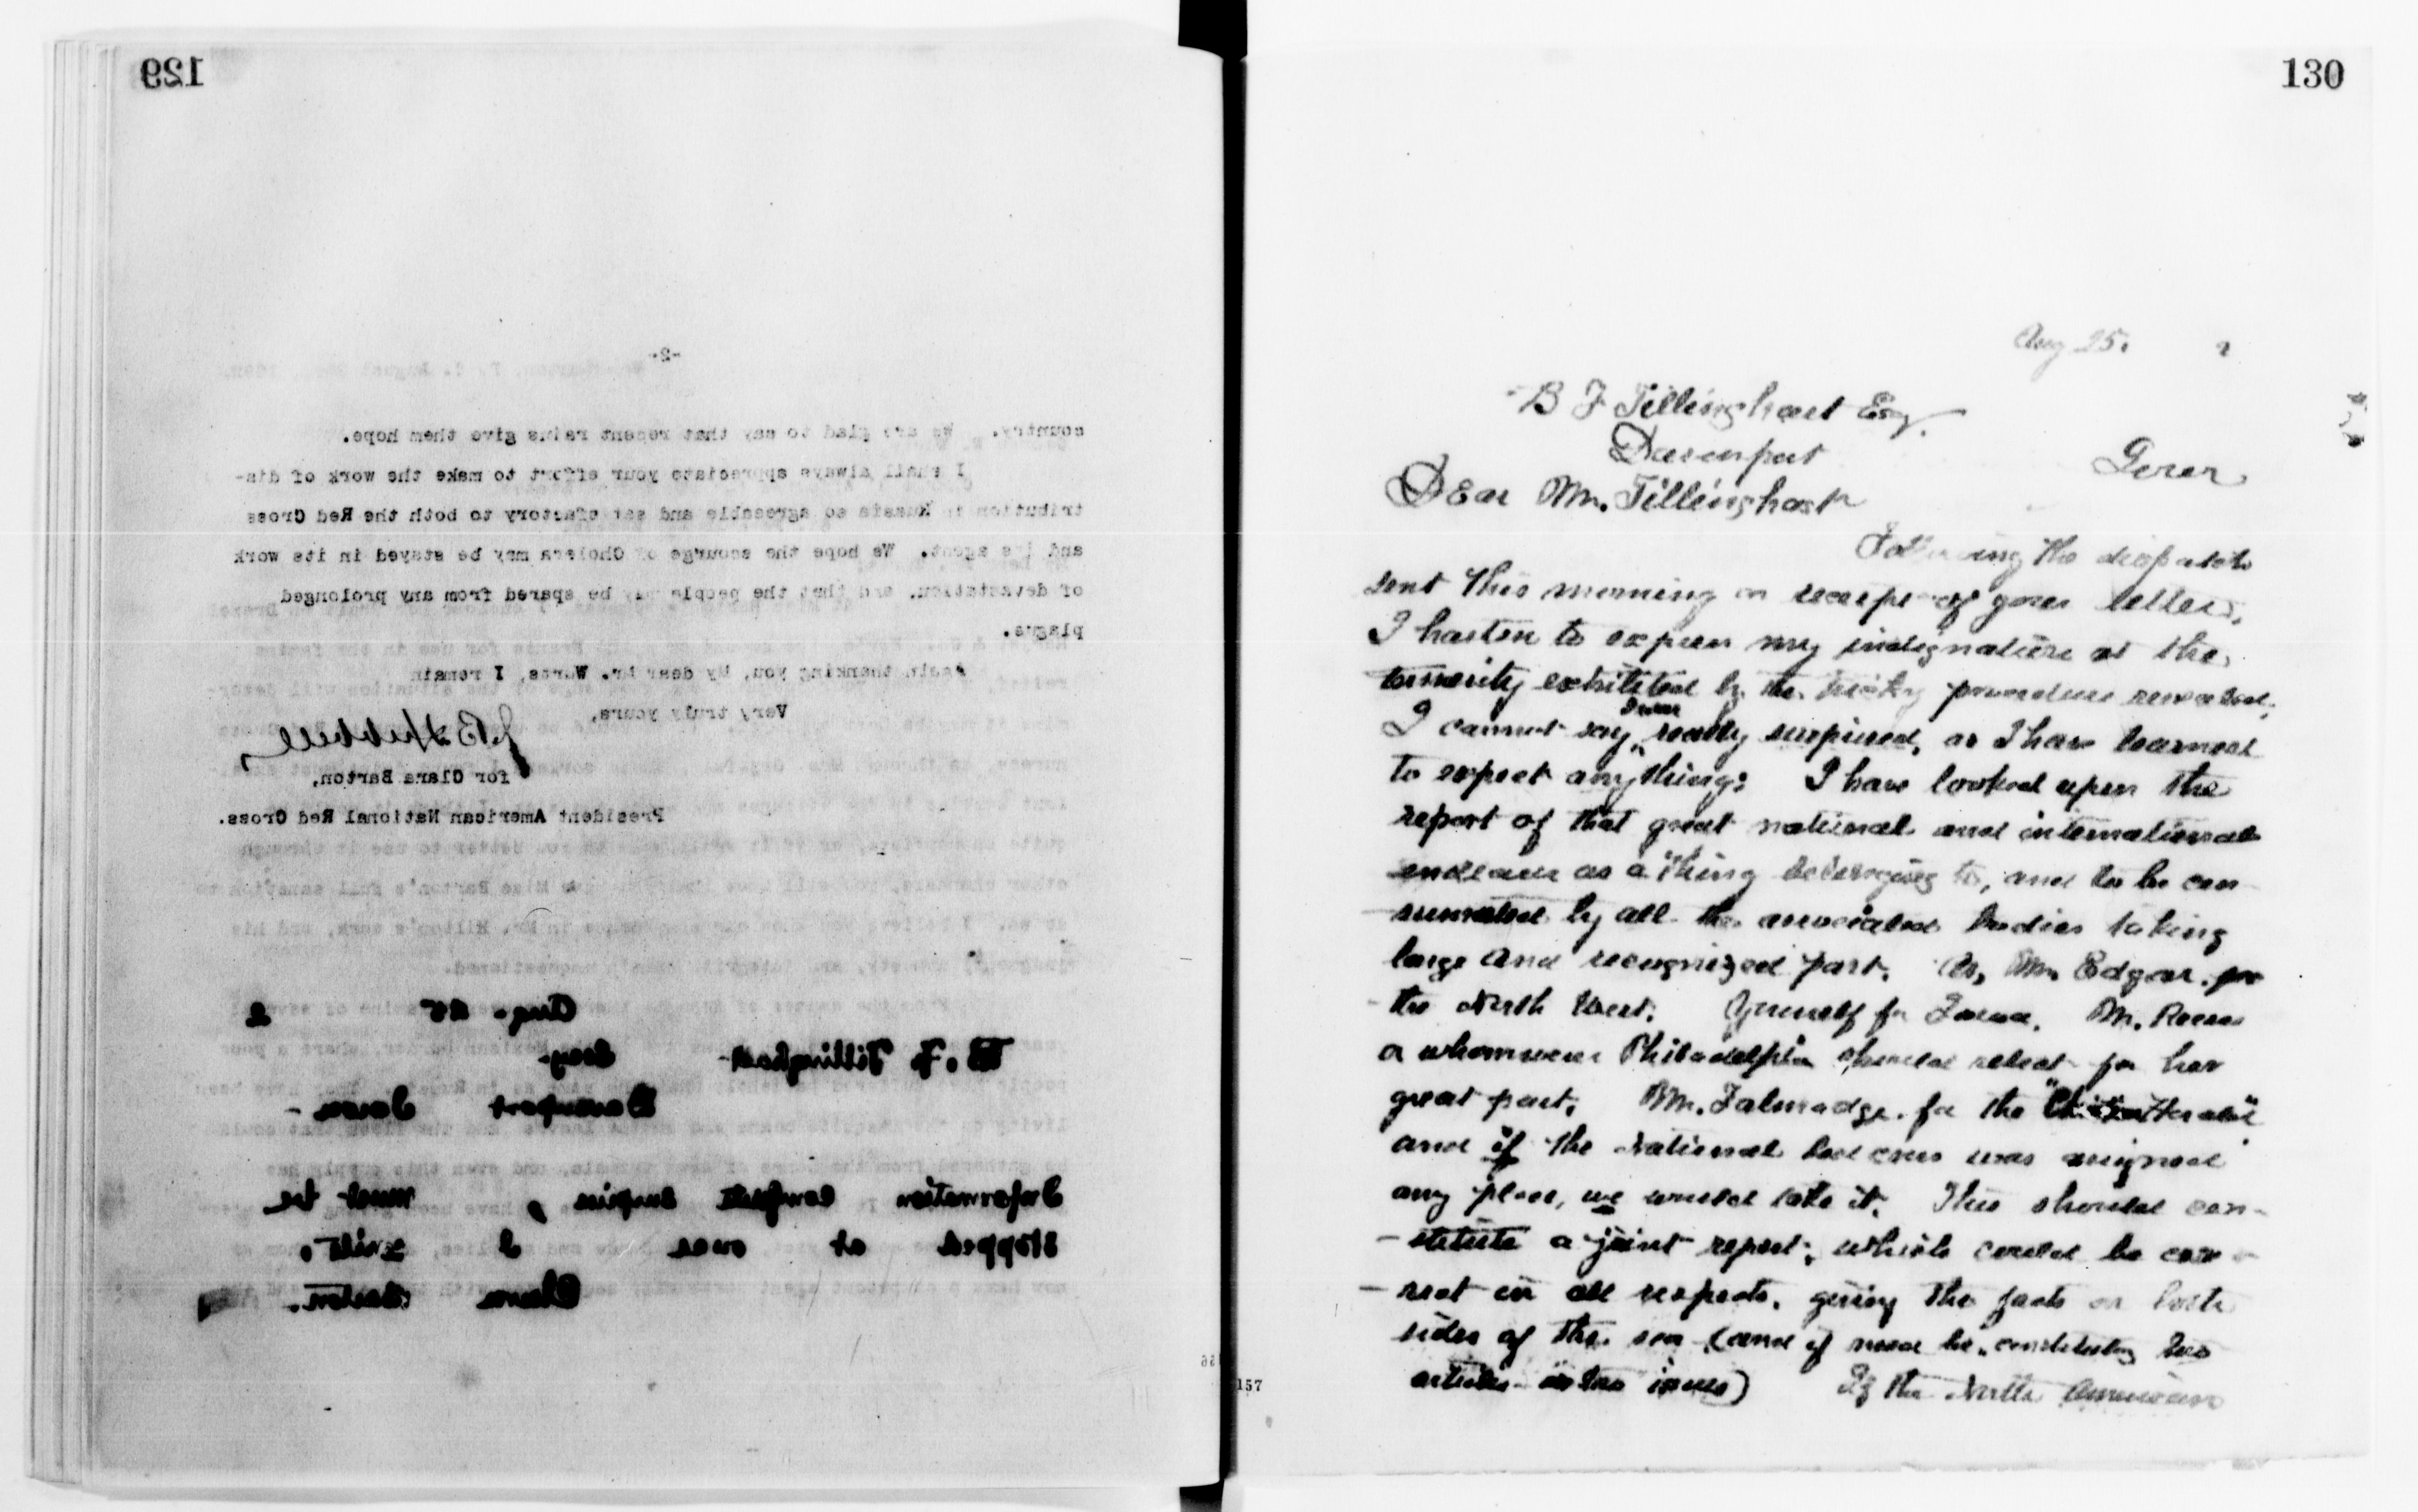 129
-2-
country. We are glad to say that recent rains give them hope.
I shall always appreciate your effort to make the work of dis-
tribution in Russia so agreeable and satisfactory to both the Red Cross
and its agent. We hope the scourge of Cholera may be stayed in its work
of devastation, and that the people may be spared from any prolonged
plague.
Again thanking you, My dear Mr. Wurts, I remain
Very truly yours,
J B Hubbell
for Clara Barton,
President American National Red Cross.
Aug. 25 2
B. F. Tillinghast
Esq.
Davenport Iowa-
Information complete surprise, must be
stopped at once I write.
Clara Barton.
130
Aug 25. 2
B F Tillinghast Esq.
Davenport
Iowa
Dear Mr. Tillinghast
Following the dispatch
sent this morning on receipt of your letter,
I hasten to express my indignation at the
temerity exhibited by the tricky procedure revealed,
I cannot say I was really surprised, as I have learned
to expect anything: I have looked upon the
report of that great national and international
endeavor as a thing belonging to, and to be con
-summated by all the associated bodies taking
large and recognized part. As, Mr. Edgar. for
- the North West. Yourself for Iowa. Mr.
or whomever Philadelphia should select for her
great part. Mr. Talmadge. for the "Christian Herald"
and if the National Red Cross was assigned
any place, we would take it. This should con-
- stitute a joint report, which could be cor-
- rect in all respects. giving the facts on both
sides of the sea (and if need be, constituting two
articles - in two issues) If the North American
156
157